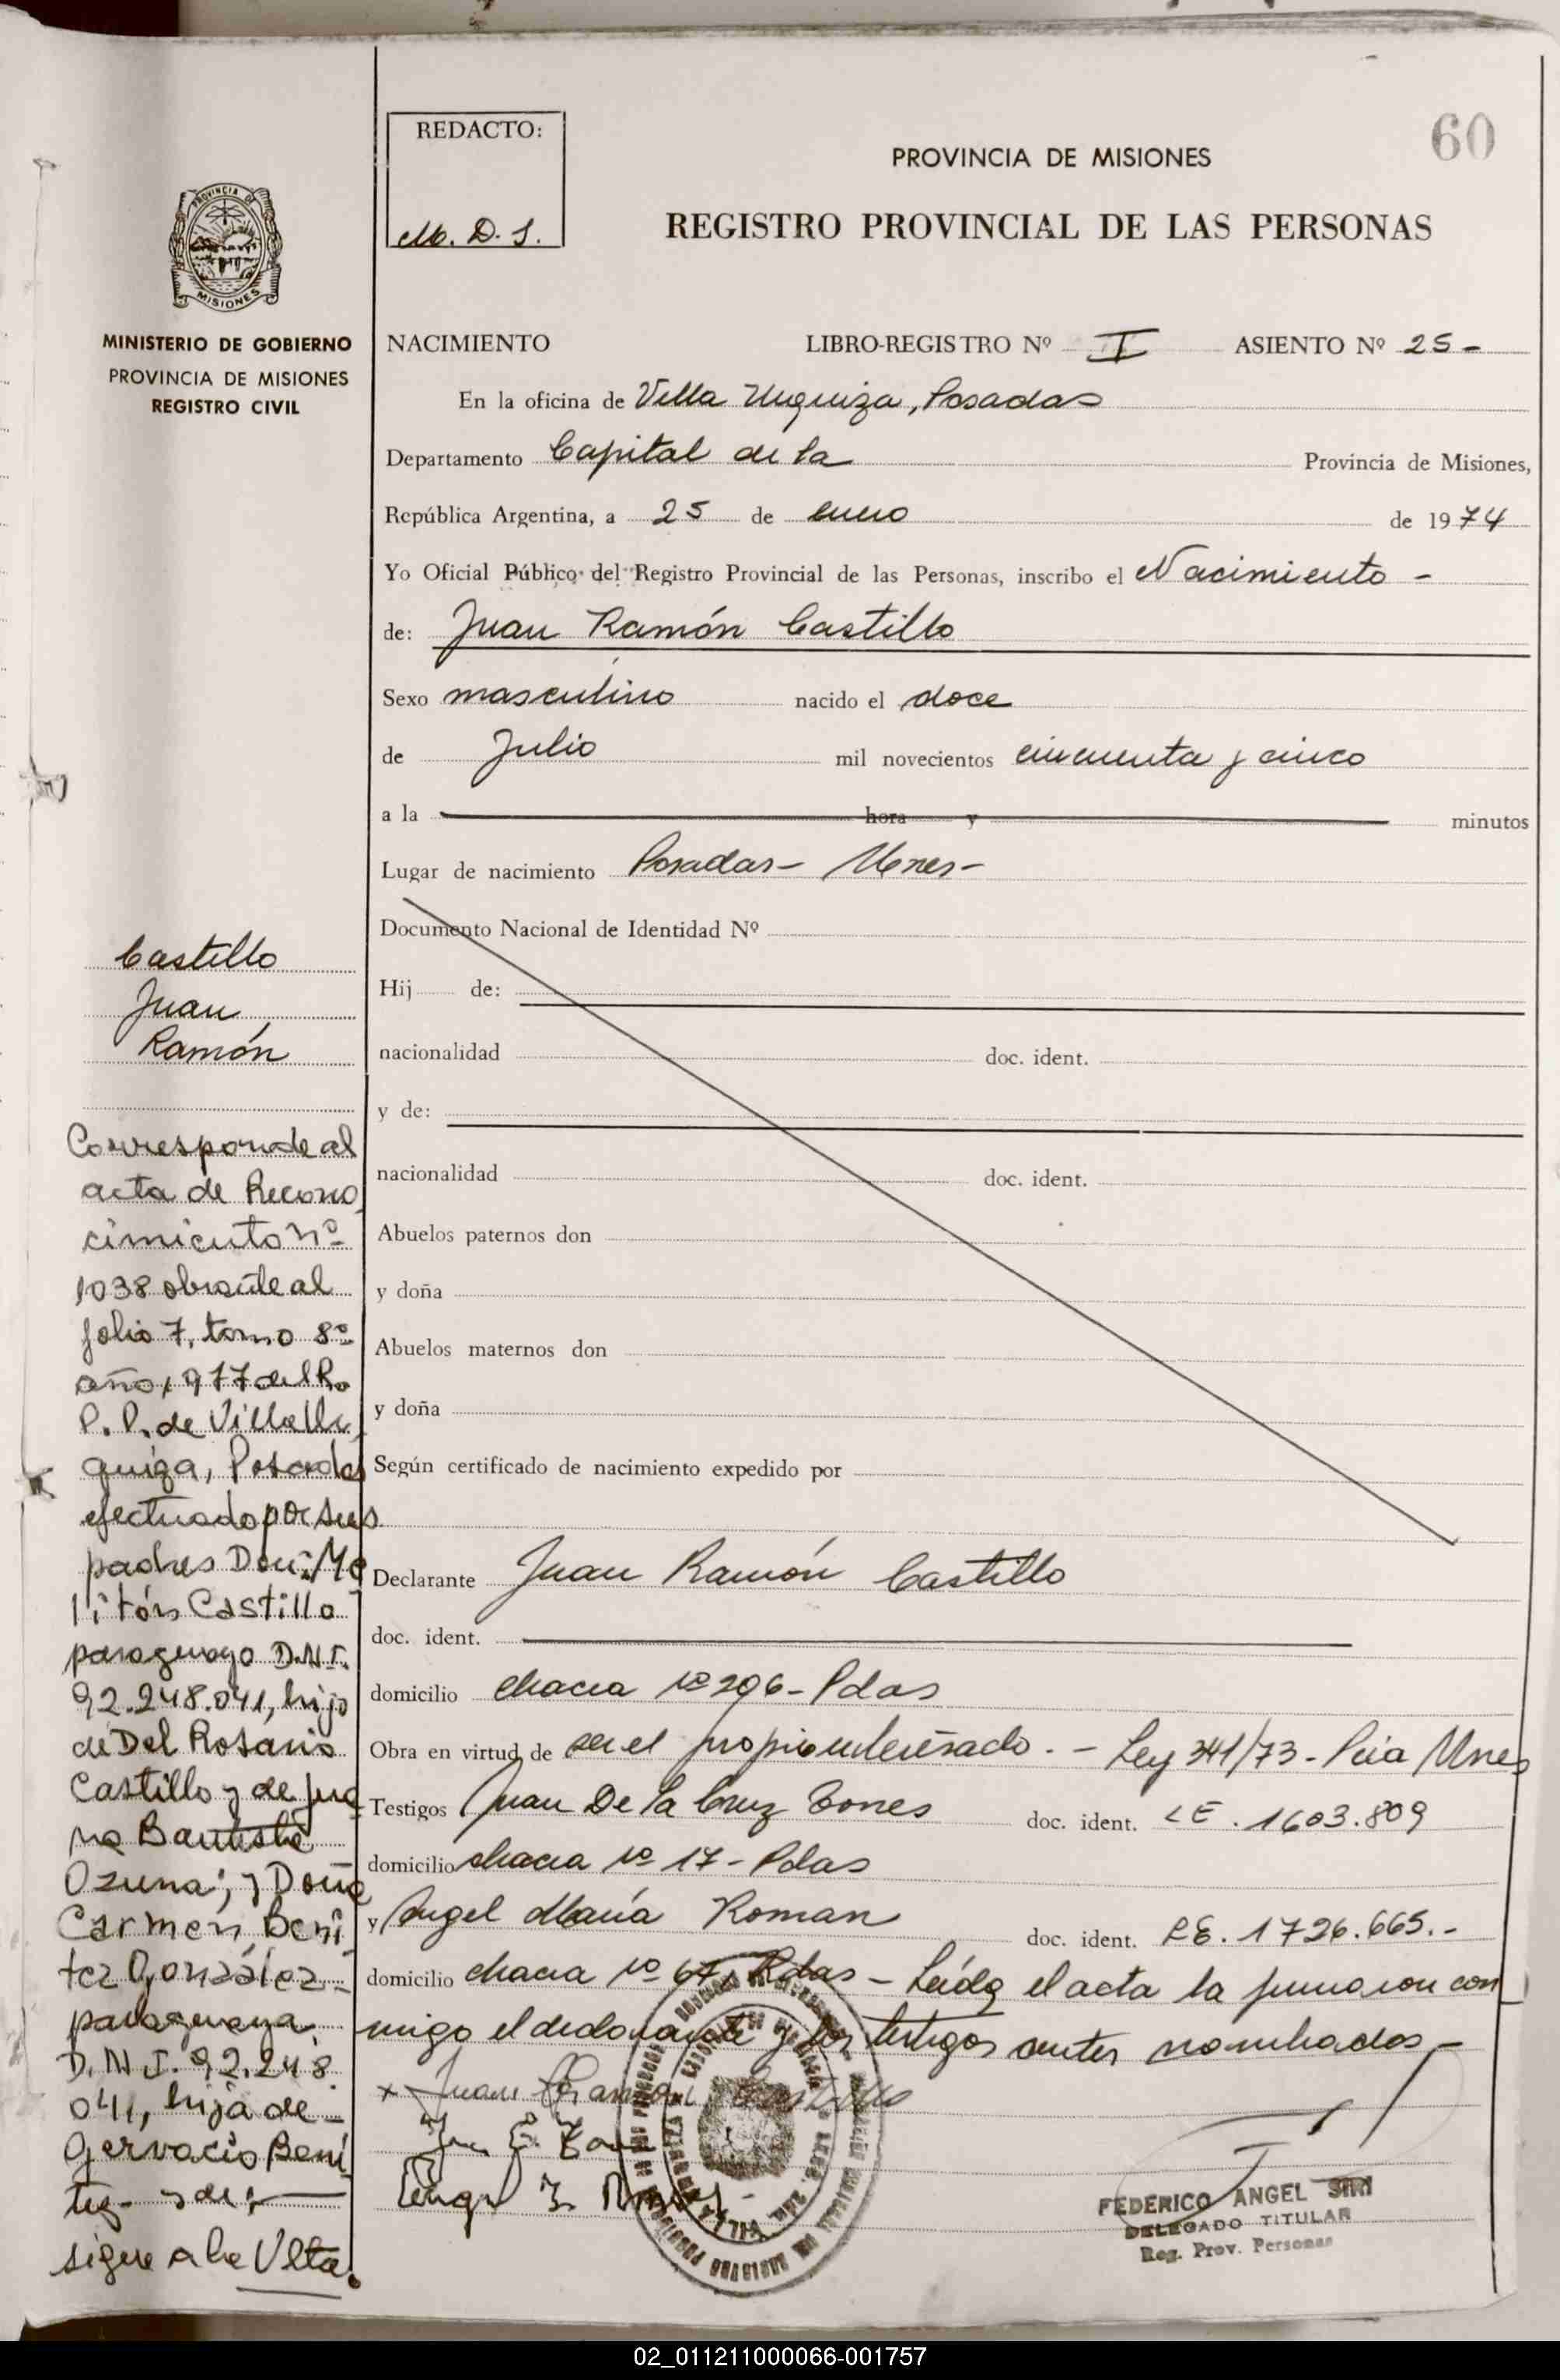 60
REDACTO:
M. D. S.
PROVINCIA DE MISIONES
REGISTRO PROVINCIAL DE LAS PERSONAS
PROVINCIA DE
MISIONES
MINISTERIO DE GOBIERNO
PROVINCIA DE MISIONES
REGISTRO CIVIL
NACIMIENTO LIBRO-REGISTRO Nº I ASIENTO Nº 25-
En la oficina de Villa Urquiza, Posadas
Departamento Capital de la Provincia de Misiones,
República Argentina, a 25 de enero de 1974
Yo Oficial Público del Registro Provincial de las Personas, inscribo el Nacimiento -
de: Juan Ramón Castillo
Sexo masculino nacido el doce
de Julio mil novecientos cincuenta y cinco
a la hora y minutos
Lugar de nacimiento Posadas - Mnes -
Documento Nacional de Identidad Nº
Hij de:
nacionalidad doc. ident.
y de:
nacionalidad doc. ident.
Abuelos paternos don
y doña
Abuelos maternos don
y doña
Según certificado de nacimiento expedido por
Declarante Juan Ramón Castillo
doc. ident.
domicilio chacra nº 206 - Pdas
Obra en virtud de ser el propio interesado. - Ley 341/73 - Pcia Mnes
Testigos Juan De la Cruz Torres doc. ident. LE. 1603.809
domicilio chacra nº 17 - Pdas
y Angel María Roman doc. ident. LE. 1726.665.-
domicilio chacra nº 67, Pdas - Leída el acta la firmaron con
migo el declarante y los testigos antes nombrados -
x Juan Ramon Castillo
FEDERICO ANGEL SIRI
DELEGADO TITULAR
Reg. Prov. Personas
Castillo
Juan
Ramón
Corresponde al
acta de Recono
cimiento nº
1038 obrante al
folio 7, tomo 8º
año 1977 del R.
P. P. de Villa Ur
quiza, Posadas
efectuado por sus
padres Don: Me
litón Castillo
paraguayo D.N.I.
92.248.041, hijo
de Del Rosario
Castillo y de Jua
na Bautista
Ozuna; y Doña
Carmen Beni
tez González
paraguaya
D.N.I. 92.248
041, hija de
Gervacio Beni
tez y de
sigue a la Vlta.
02_011211000066-001757